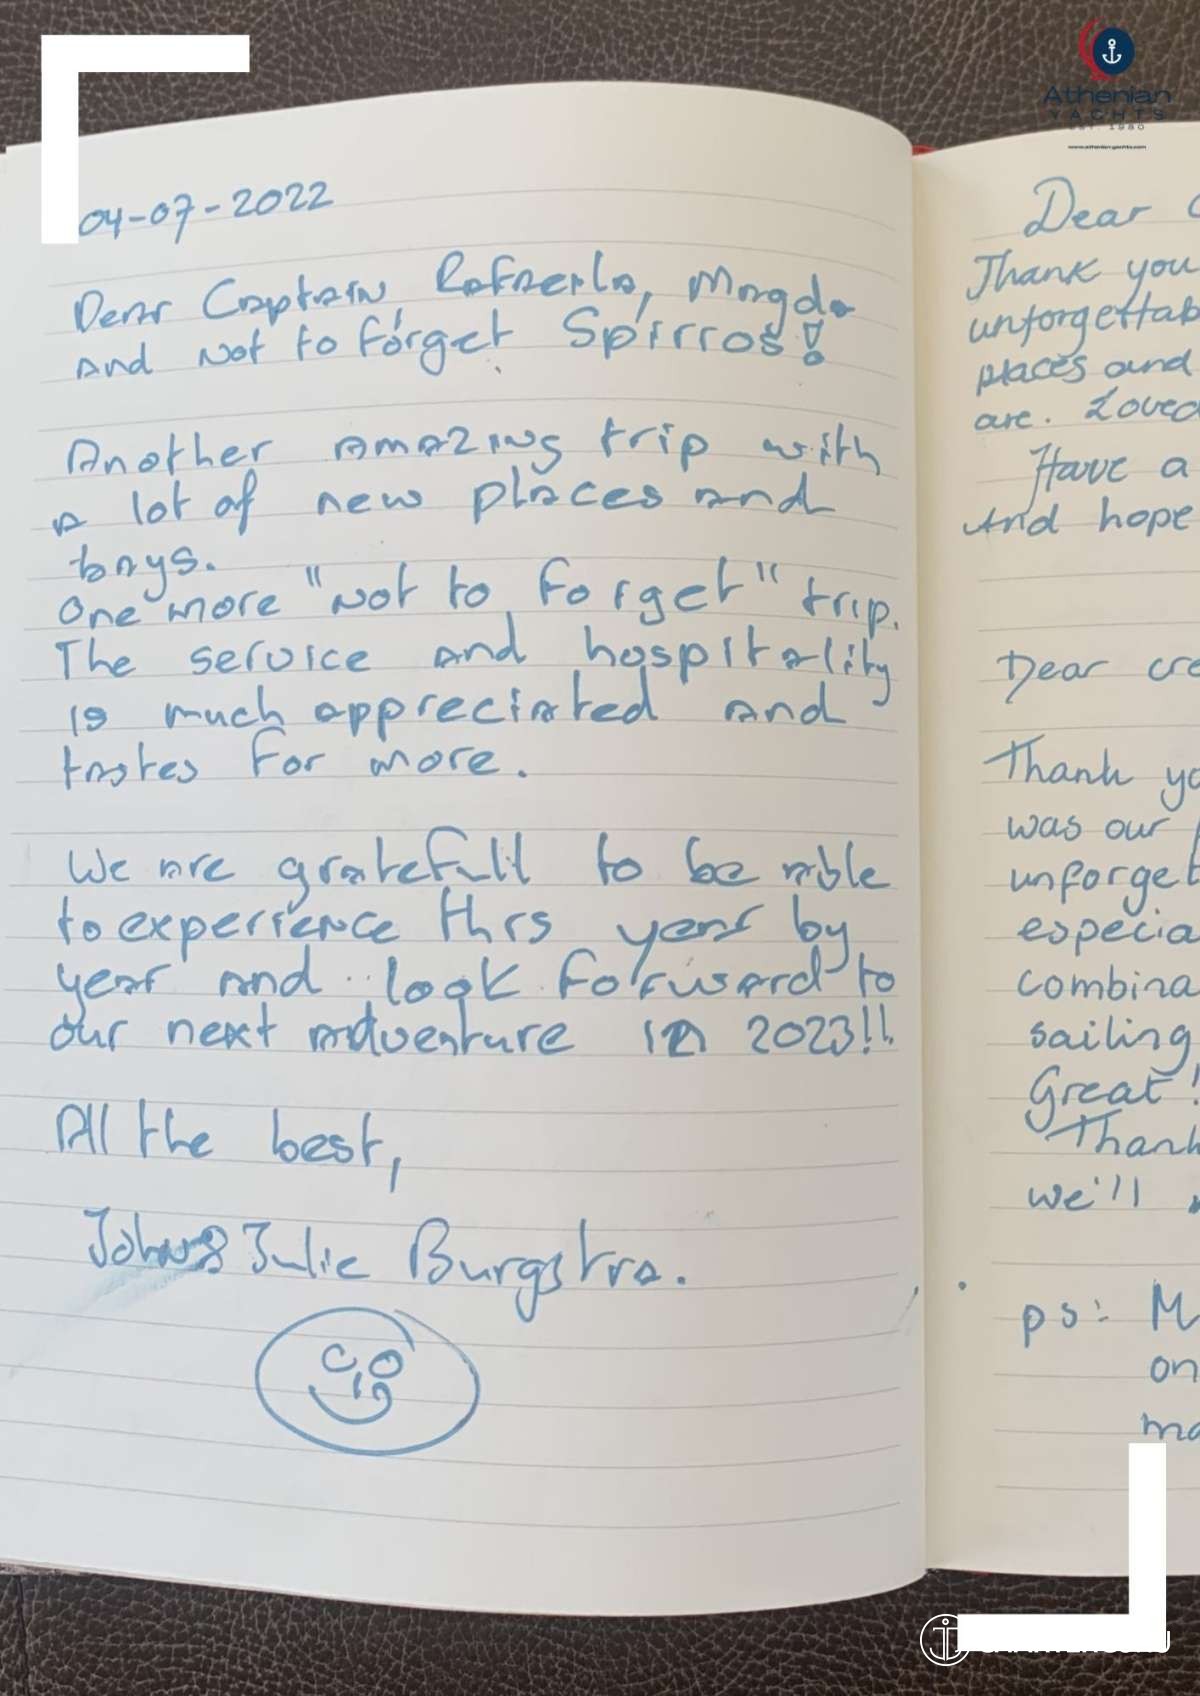 Athenian
YACHTS
EST. 1980
www.athenian.yachts.com
04-07-2022
Dear Captain, Rafaerla, Magda
and not to forget Spirros!
Another amazing trip with
a lot of new places and
bays.
One more "not to forget" trip.
The service and hospitality
is much appreciated and
tastes for more.
We are gratefull to be able
to experience this year by
year and look forward to
our next adventure in 2023!!
All the best,
John & Julie Burgstra.
Dear
Thank you
unforgettab
places and
are. Loved
Have a
And hope
Dear cre
Thank yo
was our
unforget
especia
combina
sailing
Great!
Thank
we'll
ps: M
on
ma